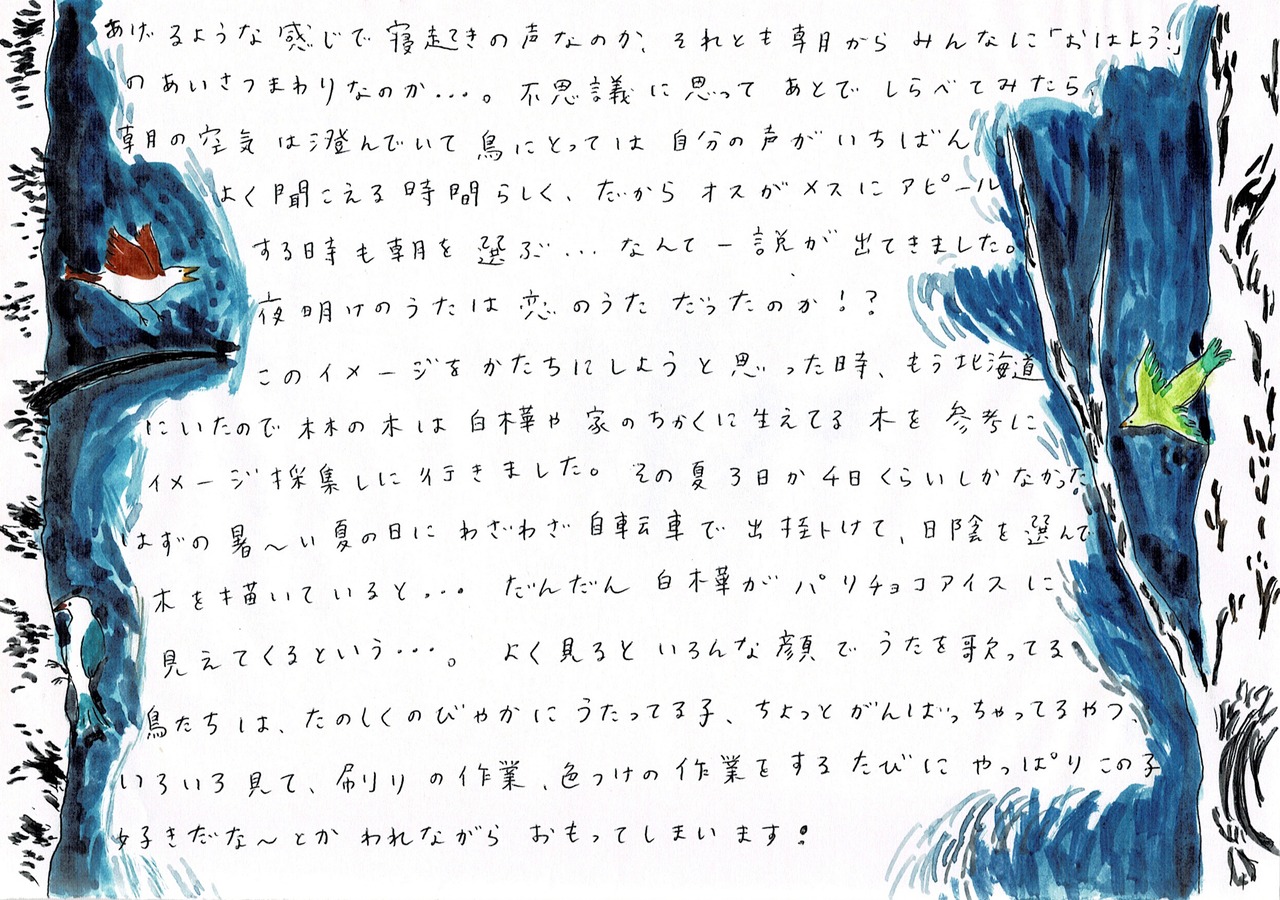 あげるような感じで寝起きの声なのか、それとも朝からみんなに「おはよう!」
のあいさつまわりなのか…。不思議に思ってあとでしらべてみたら、
朝の空気は澄んでいて鳥にとっては自分の声がいちばん
よく聞こえる時間らしく、だからオスがメスにアピール
する時も朝を選ぶ…なんて一説が出てきました。
夜明けのうたは恋のうただったのか!?
このイメージをかたちにしようと思った時、もう北海道
にいたので森の木は白樺や家のちかくに生えてる木を参考に
イメージ採集しに行きました。その夏3日か4日くらいしかなかった
はずの暑〜い夏の日にわざわざ自転車で出掛けて、日陰を選んで
木を描いていると…だんだん白樺がパリチョコアイスに
見えてくるという…。よく見るといろんな顔でうたを歌ってる
鳥たちは、たのしくのびやかにうたってる子、ちょっとがんばっちゃってるやつ、
いろいろ見て、刷りの作業、色つけの作業をするたびにやっぱりこの子
好きだな〜とかわれながらおもってしまいます!